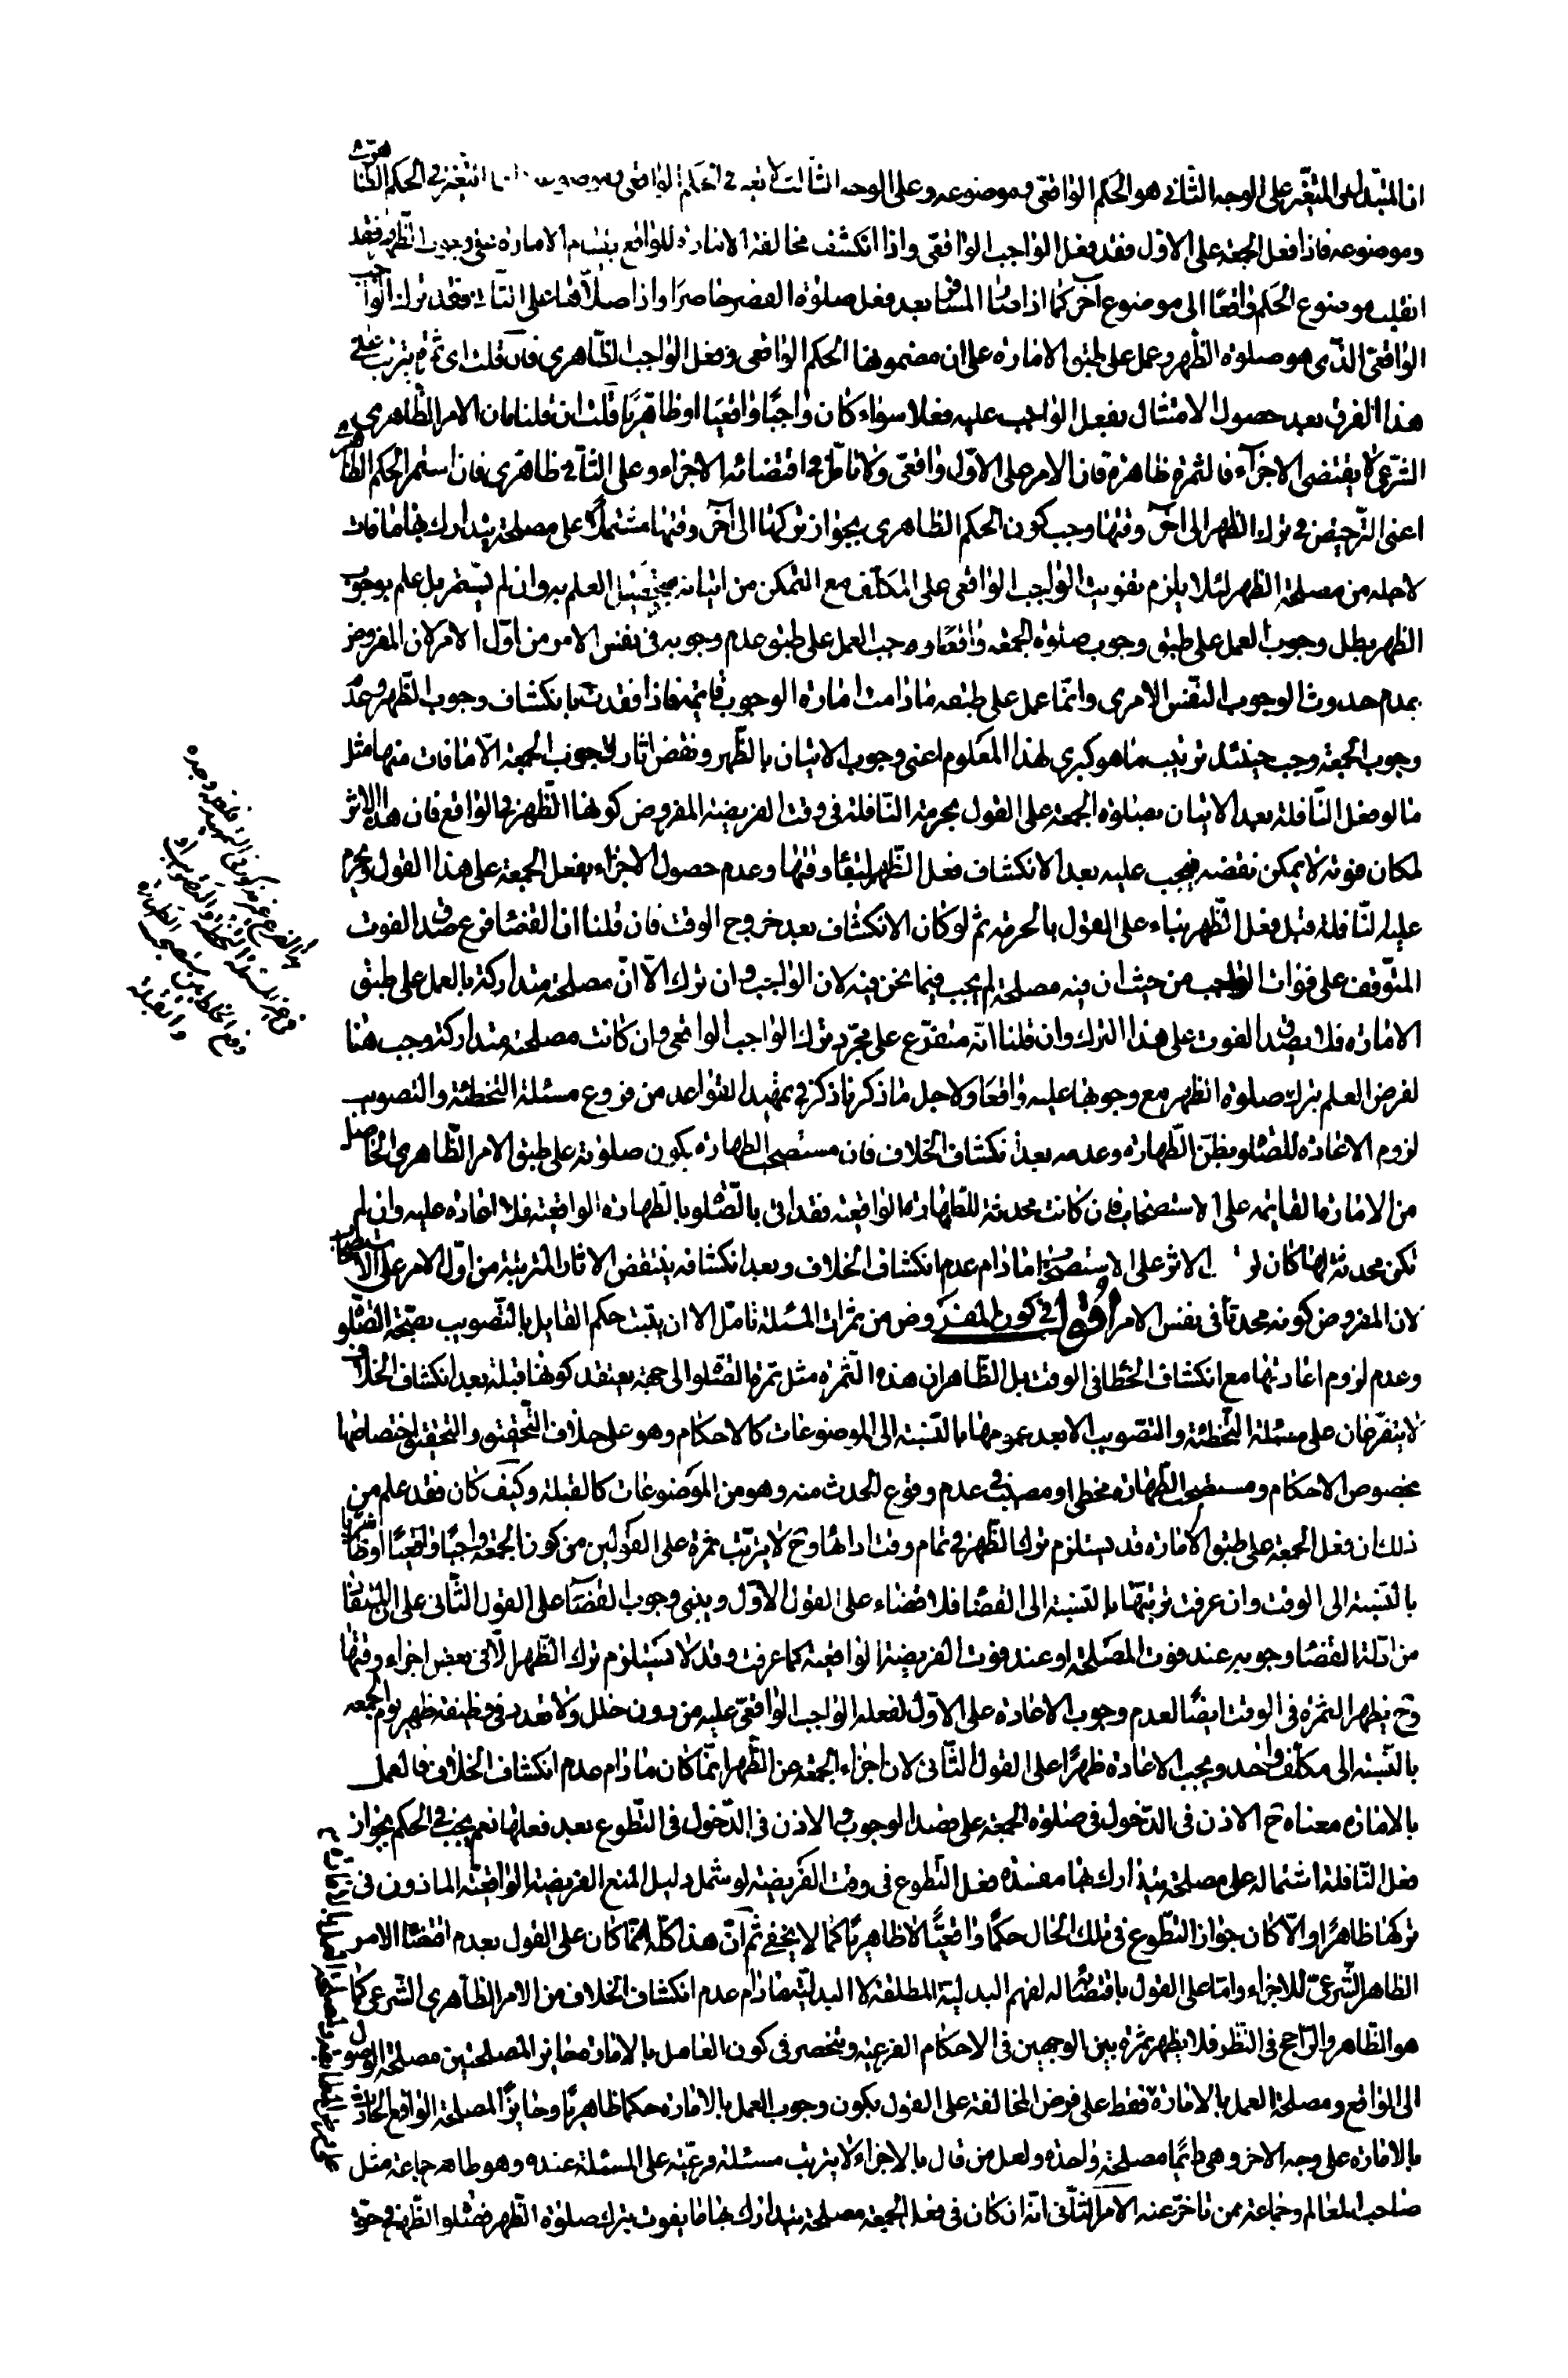 ان المتبدل والمتغير على الوجه الثانى هو الحكم الواقعى وموضوعه وعلى الوجه الثالث لا تغير فى الحكم الواقعى التغير فى الحكم الظاهرى
وموضوعه فاذا فعل الجمعة على الاول فقد فعل الواجب الواقعى واذا انكشف مخالفة الامارة للواقع بقيام الامارة وجوب الظهر فقد
انقلب موضوع الحكم واقعا الى موضوع آخر كما اذا صار المسافر بعد فعل صلوة القصر حاضرا واذا صلاها على الثانى فقد ترك الواجب
الواقعى الذى هو صلوة الظهر وعمل على طبق الامارة على ان مضمونها الحكم الواقعى وفعل الواجب الظاهرى فان قلت اى ثمرة يترتب على
هذا الفرق بعد حصول الامتثال بفعل الواجب عليه فعلا سواء كان واجبا واقعيا او ظاهريا قلت ان قلنا بان الامر الظاهرى
الشرعى لا يقتضى الاجزاء فالثمرة ظاهرة فان الامر على الاول واقعى ولا تامل فى اقتضائه الاجزاء وعلى الثانى ظاهرى فان استمر الحكم الظاهرى
اعنى الترخيص فى ترك الظهر الى آخر وقتها وجب كون الحكم الظاهرى بجواز تركها الى آخر وقتها مشتملا على مصلحة يتدارك بها ما فات
لاجله من مصلحة الظهر لئلا يلزم تفويت الواجب الواقعى على المكلف مع التمكن من اتيانه بتحصيل العلم به وان لم يستمر بل علم بوجوب
الظهر بطل وجوب العمل على طبق وجوب صلوة الجمعة واقعا ووجب العمل على طبق عدم وجوبه فى نفس الامر من اول الامر لان المفروض
عدم حدوث الوجوب النفس الامرى وانما عمل على طبقه ما دامت امارة الوجوب قائمة فاذا فقدت بانكشاف وجوب الظهر وعدم
وجوب الجمعة وجب حينئذ ترتيب ما هو كبرى لهذا المعلوم اعنى وجوب الاتيان بالظهر ونقض اثار وجوب الجمعة الا ما فات منها مثل
ما لو فعل النافلة بعد الاتيان بصلوة الجمعة على القول بحرمة النافلة فى وقت الفريضة المفروض كونها الظهر فى الواقع فان هذا الاثر
لمكان فوته لا يمكن نقضه فيجب عليه بعد الانكشاف فعل الظهر لبقاء وقتها وعدم حصول الاجزاء بفعل الجمعة على هذا القول ويحرم
عليه النافلة قبل فعل الظهر بناء على القول بالحرمة ثم لو كان الانكشاف بعد خروج الوقت فان قلنا ان القضا فرع صدق الفوت
المتوقف على فوات الواجب من حيث ان فيه مصلحة لم يجب فيما نحن فيه لان الواجب وان ترك الا ان مصلحته متداركة بالعمل على طبق
الامارة فلا يصدق الفوت على هذا الترك وان قلنا انه متفرع على مجرد ترك الواجب الواقعى وان كانت مصلحته متداركة وجب هنا
لفرض العلم بترك صلوة الظهر مع وجوبها عليه واقعا ولاجل ما ذكرنا ذكر فى تمهيد القواعد من فروع مسئلة التخطئة والتصويب
لزوم الاعادة للصلوة بظن الطهارة وعدمه بعد انكشاف الخلاف فان مستصحب الطهارة يكون صلوته على طبق الامر الظاهرى الحاصل
من الامارة القائمة على الاستصحاب فان كانت محدثة للطهارة الواقعية فقد اتى بالصلوة بالطهارة الواقعية فلا اعادة عليه وان لم
تكن محدثة لها كان الاثر على الاستصحاب ما دام عدم انكشاف الخلاف وبعد انكشافه ينتقض الاثار المترتبة من اول الامر على الاستصحاب
لان المفروض كونه محدثا فى نفس الامر اقول فى كون المفروض من ثمرات المسئلة تامل الا ان يثبت حكم القايل بالتصويب بصحة الصلوة
وعدم لزوم اعادتها مع انكشاف الخطا فى الوقت بل الظاهر ان هذه الثمرة مثل ثمرة الصلوة الى جهة يعتقد كونها قبلة بعد انكشاف الخلاف
لا يتفرعان على مسئلة التخطئة والتصويب الا بعد عمومها بالنسبة الى الموضوعات كالاحكام وهو على خلاف التحقيق والتحقيق اختصاصها
بخصوص الاحكام ومستصحب الطهارة مخطئ او مصيب فى عدم وقوع الحدث منه وهو من الموضوعات كالقبلة وكيف كان فقد علم من
ذلك ان فعل الجمعة على طبق الامارة قد يستلزم ترك الظهر فى تمام وقت ادائها وح لا يترتب ثمرة على القولين من كون الجمعة واجبا واقعيا او ظاهريا
بالنسبة الى الوقت وان عرفت ترتبها بالنسبة الى القضا فلا قضاء على القول الاول ويبنى وجوب القضا على القول الثانى على استفادة
من ادلة القضا وجوبه عند فوت المصلحة او عند فوت الفريضة الواقعية كما عرفت وقد لا يستلزم ترك الظهر الا فى بعض اجزاء وقتها
وح يظهر الثمرة فى الوقت ايضا لعدم وجوب الاعادة على الاول لفعله الواجب الواقعى عليه من دون خلل ولا تعدد فى وظيفة ظهر يوم الجمعة
بالنسبة الى مكلف واحد ويجب الاعادة ظهرا على القول الثانى لان اجزاء الجمعة عن الظهر انما كان ما دام عدم انكشاف الخلاف فالعمل
بالامارة معناه ح الاذن فى الدخول فى صلوة الجمعة على قصد الوجوب والاذن فى الدخول فى التطوع بعد فعلها نعم يجب فى الحكم بجواز
فعل النافلة اشتماله على مصلحة يتدارك بها مفسدة فعل التطوع فى وقت الفريضة لو شمل دليل المنع الفريضة الواقعية الماذون فى
تركها ظاهرا والا كان جواز التطوع فى تلك الحال حكما واقعيا لا ظاهريا كما لا يخفى ثم ان هذا كله انما كان على القول بعدم اقتضا الامر
الظاهر الشرعى للاجزاء واما على القول باقتضائه له لفهم البدلية المطلقة لا البدلية ما دام عدم انكشاف الخلاف من الامر الظاهرى الشرعى كما
هو الظاهر والراجح فى النظر فلا يظهر ثمرة بين الوجهين فى الاحكام الفرعية وتنحصر فى كون العامل بالامارة حايز المصلحتين مصلحة الوصول
الى الواقع ومصلحة العمل بالامارة فقط على فرض المخالفة على القول بكون وجوب العمل بالامارة حكما ظاهريا وحايزا لمصلحة الواقع الحادث
بالامارة على وجه الاخر وهى دائما مصلحة واحدة ولعل من قال بالاجزاء لا يترتب مسئلة فرعية على المسئلة عنده وهو ظاهر جماعة مثل
صاحب المعالم وجماعة ممن تاخر عنه الامر الثانى انه ان كان فى فعل الجمعة مصلحة يتدارك بها ما يفوت بترك صلوة الظهر فصلوة الظهر فى حقه